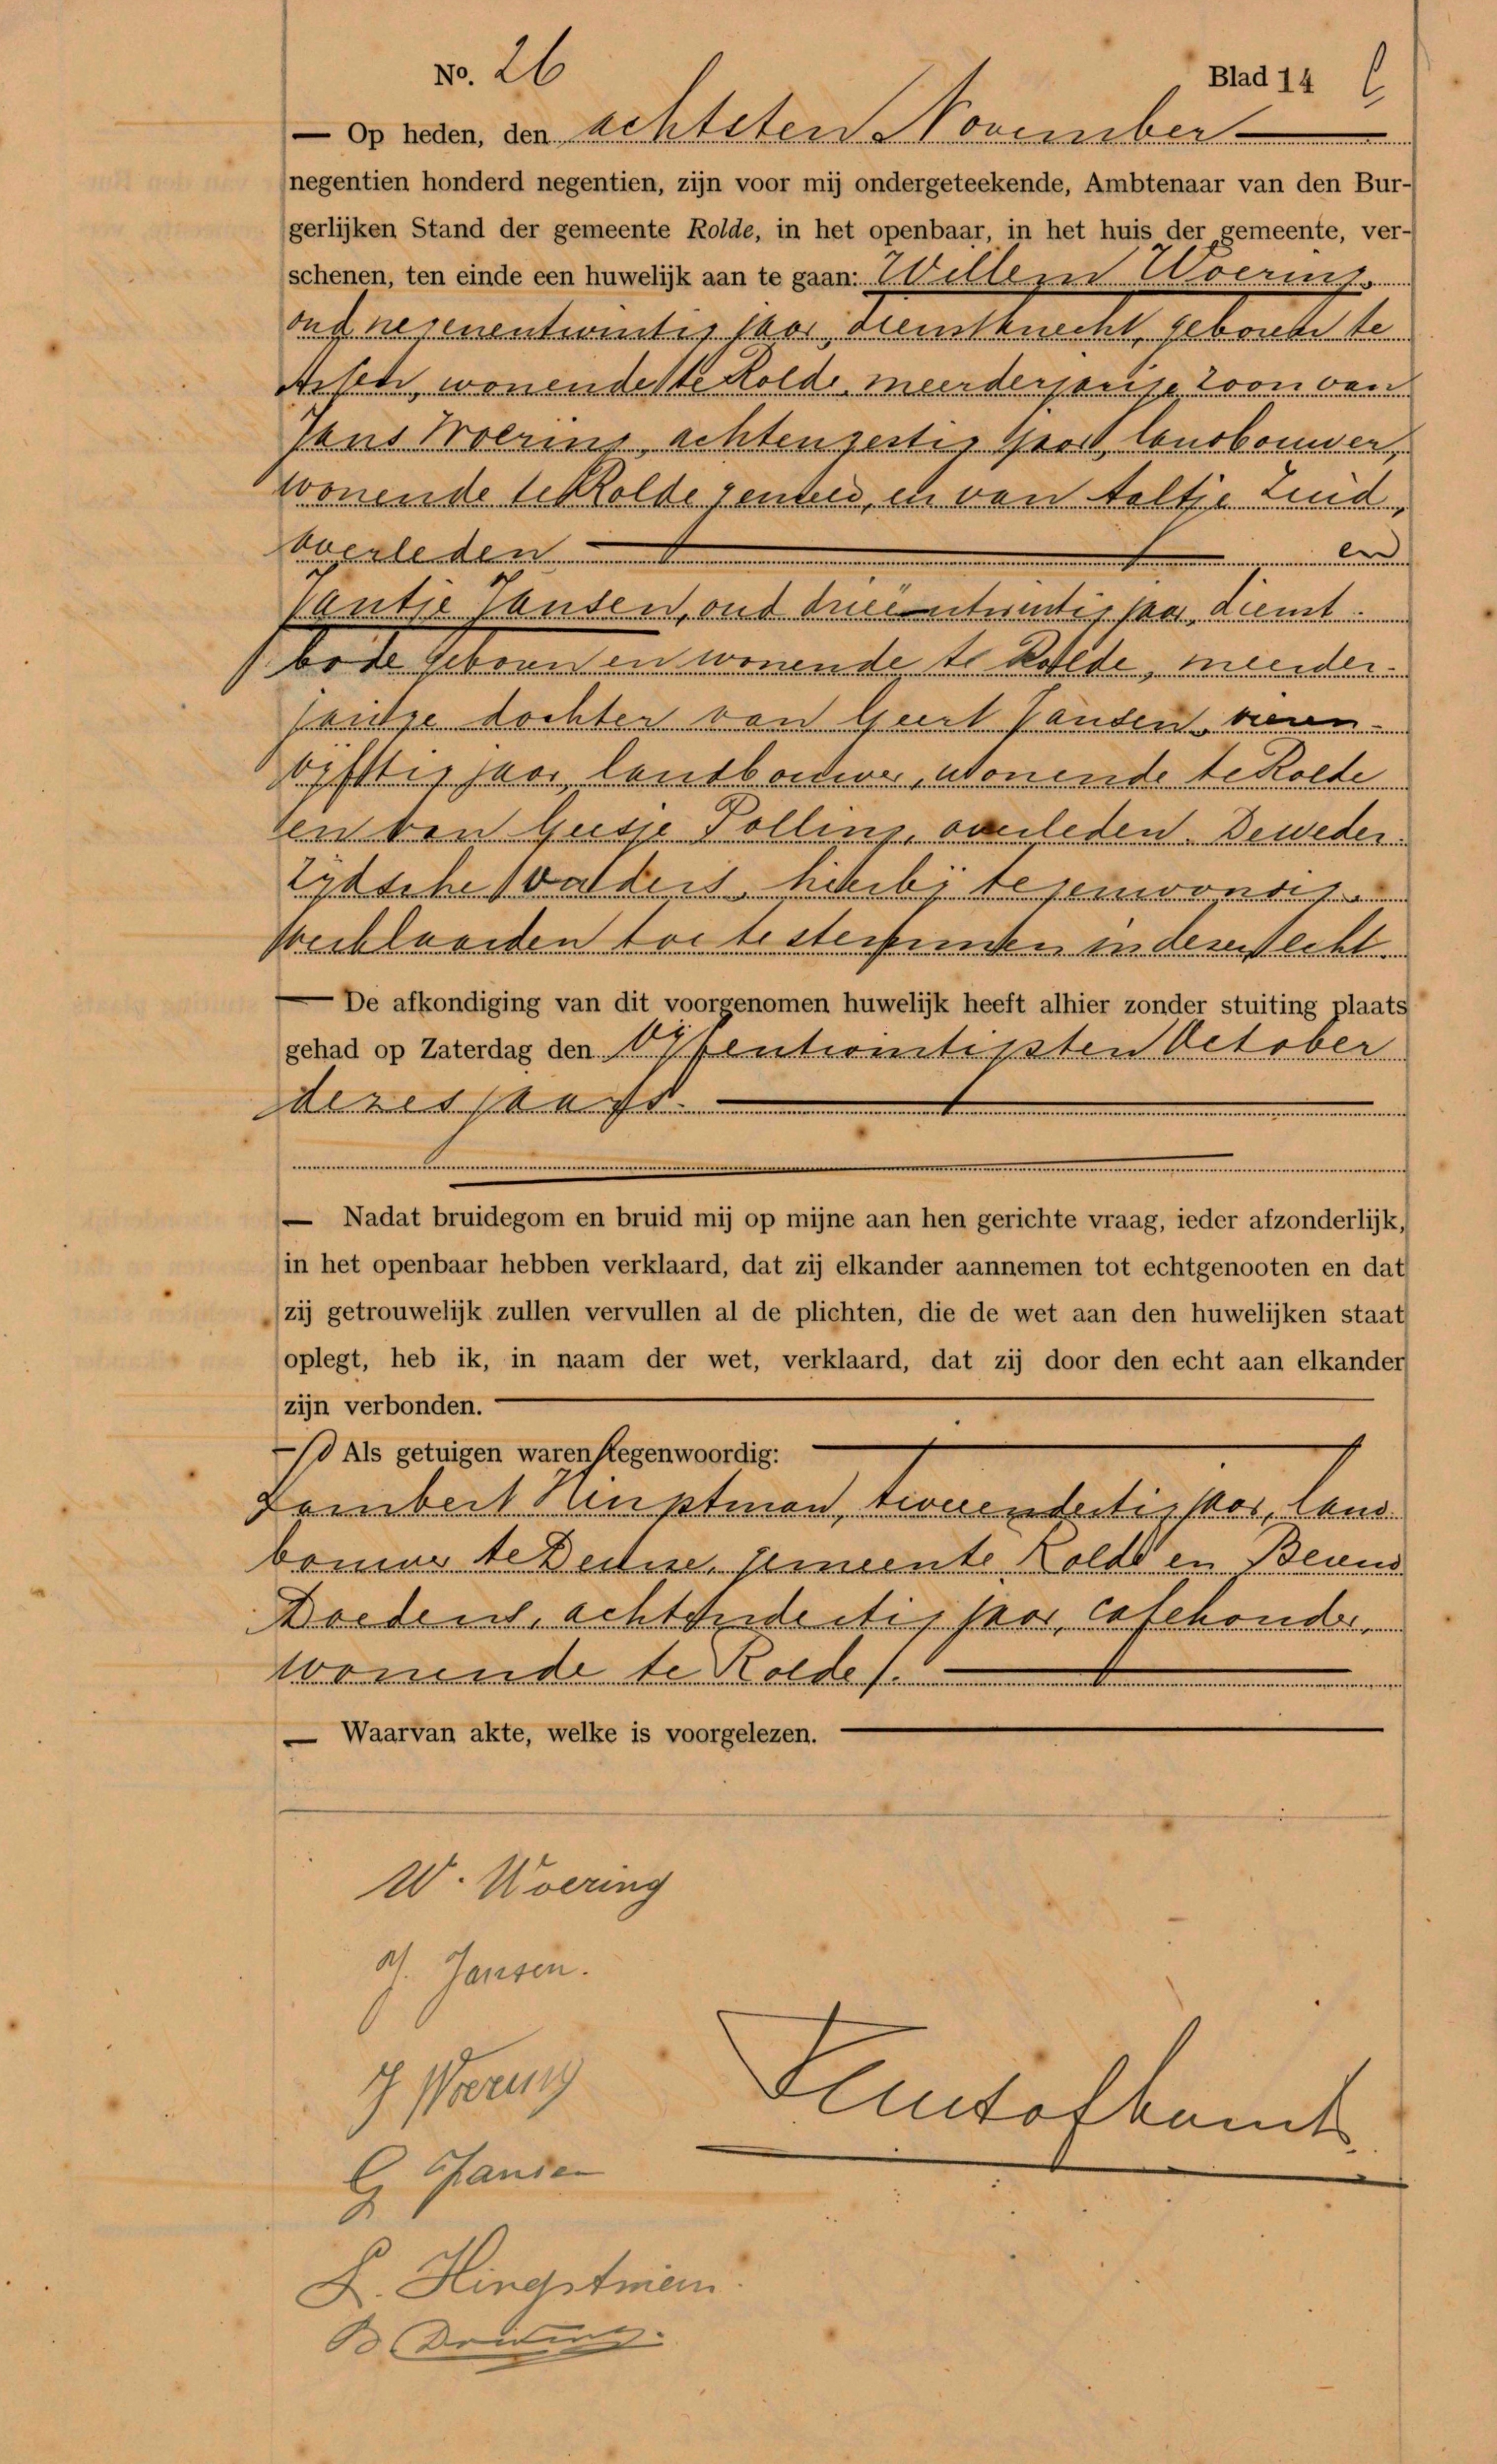 No. 26
Blad 14
— Op heden, den achtsten November
negentien honderd negentien, zijn voor mij ondergeteekende, Ambtenaar van den Bur-
gerlijken Stand der gemeente Rolde, in het openbaar, in het huis der gemeente, ver-
schenen, ten einde een huwelijk aan te gaan: Willem Woering,
oud negenentwintig jaar, dienstknecht, geboren te
Assen, wonende te Rolde, meerderjarige zoon van
Jans Woering, achtenzestig jaar, landbouwer,
wonende te Rolde gemeld, en van Aaltje Zuid,
overleden en
Jantje Jansen, oud drieëntwintig jaar, dienst-
bode geboren en wonende te Rolde, meerder-
jarige dochter van Geert Jansen, vieren-
vijftig jaar, landbouwer, wonende te Rolde
en van Geesje Polling, overleden. De weder-
zijdsche vaders, hierbij tegenwoordig
verklaarden toe te stemmen in dezen echt
— De afkondiging van dit voorgenomen huwelijk heeft alhier zonder stuiting plaats
gehad op Zaterdag den Vijfentwintigsten October
dezes jaars.
— Nadat bruidegom en bruid mij op mijne aan hen gerichte vraag, ieder afzonderlijk,
in het openbaar hebben verklaard, dat zij elkander aannemen tot echtgenooten en dat
zij getrouwelijk zullen vervullen al de plichten, die de wet aan den huwelijken staat
oplegt, heb ik, in naam der wet, verklaard, dat zij door den echt aan elkander
zijn verbonden.
— Als getuigen waren tegenwoordig:
Lambert Hingstman, tweeendertig jaar, land-
bouwer te Deurze, gemeente Rolde en Berend
Doedens, achtendertig jaar, caféhouder,
wonende te Rolde.
— Waarvan akte, welke is voorgelezen.
W. Woering
J. Jansen.
J Woering
G Jansen
L. Hingstman.
B